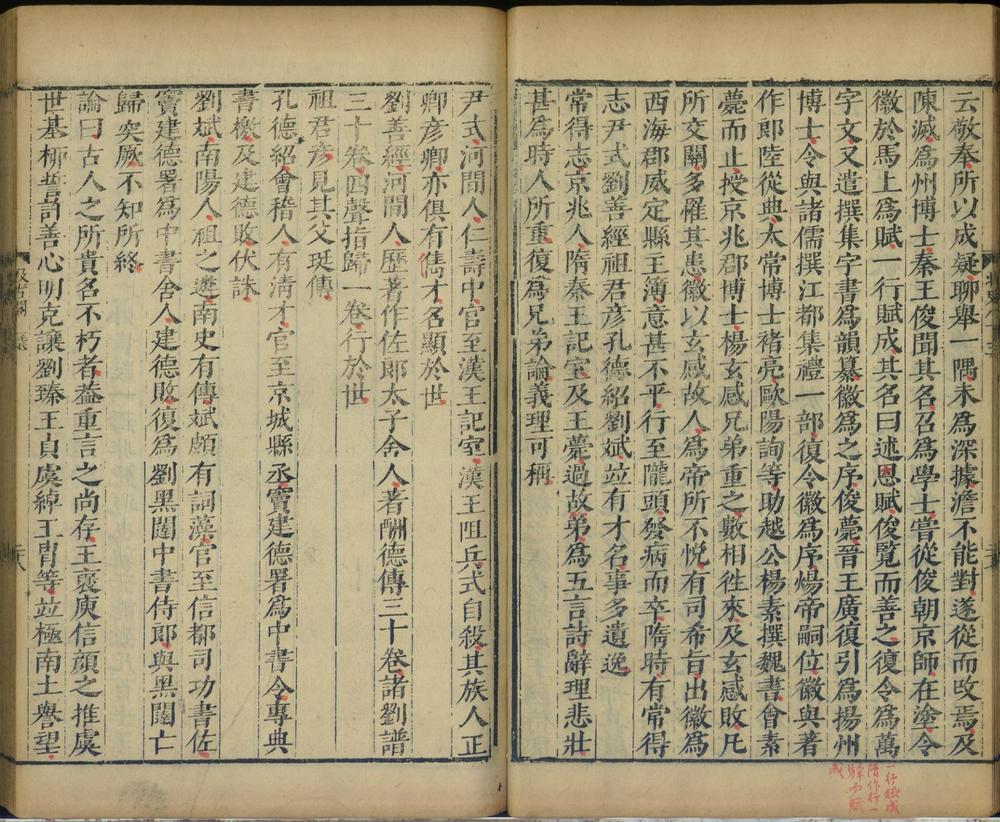 云敬奉所以成疑聊舉一隅未爲深據澹不能對遂從而攺焉及
陳滅爲州博士秦王俊聞其名召爲學士甞從俊朝京師在塗令
徽於馬上爲賦一行賦成其名曰述恩賦俊覧而善之復令爲萬
字文又遣撰集字書爲韻纂徽爲之序俊薨晉王廣復引爲揚州
博士令與諸儒撰江都集禮一部復令徽爲序煬帝嗣位徽與著
作郎陸從典太常博士褚亮歐陽詢等助越公楊素撰魏書會素
薨而止授京兆郡博士楊玄感兄弟重之數相徃來及玄感敗凡
所交關多羅其患徽以玄感故人爲帝所不悅有司希旨出徽爲
西海郡威定縣主簿意甚不平行至隴頭發病而卒隋時有常得
志尹式劉善經祖君彥孔德紹劉斌竝有才名事多遺逸
常得志京兆人隋秦王記室及王薨過故弟爲五言詩辭理悲壯
甚爲時人所重復爲兄弟論義理可稱
尹式河間人仁壽中官至漢王記室漢王阻兵式自殺其族人正
卿彥卿亦俱有雋才名顯於世
劉善經河間人歷著作佐郎太子舍人著酬德傳三十卷諸劉譜
三十卷四聲指歸一卷行於世
祖君彥見其父珽傳
孔德紹會稽人有清才官至京城縣丞竇建德署爲中書令專典
書檄及建德敗伏誅
劉斌南陽人祖之遴南史有傳斌頗有詞藻官至信都司功書佐
竇建德署爲中書舍人建德敗復爲劉黑闥中書侍郎與黑闥亡
歸突厥不知所終
論曰古人之所貴名不朽者葢重言之尚存王褒庾信顏之推虞
世基栁䛒許善心明克讓劉臻王貞虞綽王胄等竝極南土譽望
一行賦成
隋作行一
驛而賦
成